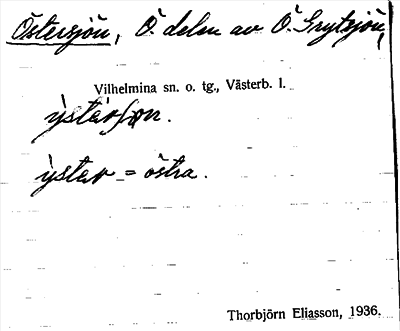 Östersjön, Ö. delen av Ö. Grytsjön,
Vilhelmina sn. o. tg., Västerb. l.
yster = östra.
Thorbjörn Eliasson, 1936.